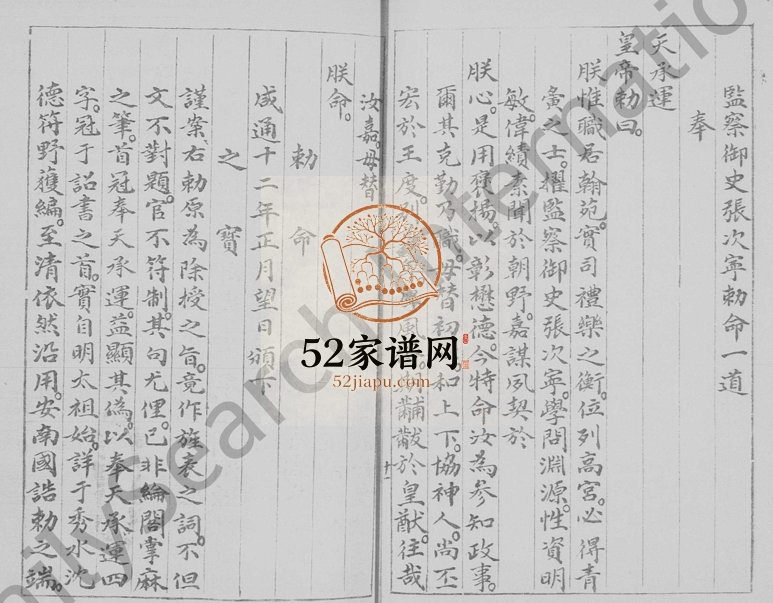 監察御史張次寧勅命一道
奉
天承運
皇帝勅曰。
朕惟職居翰苑。實司禮樂之衡。位列高宮。必得青
黌之士。擢監察御史張次寧。學問淵源。性資明
敏。偉績素聞於朝野。嘉謀夙契於
朕心。是用褒揚。以彰懋德。今特命汝為參知政事。
爾其克勤乃職。毋替初 和上下。協神人。尚丕
宏於王度。別 風 黼黻於皇猷。往哉
汝嘉。毋替
朕命。
勅命
咸通十二年正月望日頒下
之寶
謹案。右勅原為除授之旨。竟作旌表之詞。不但
文不對題。官不符制。其句尤俚。已非綸閣掌麻
之筆。首冠奉天承運。益顯其偽。以奉天承運四
字。冠于詔書之首。實自明太祖始。詳于秀水沈
德符野獲編。至清依然沿用。安南國誥勅之端。
十一
52家谱网
52jiapu.com
FamilySearch International